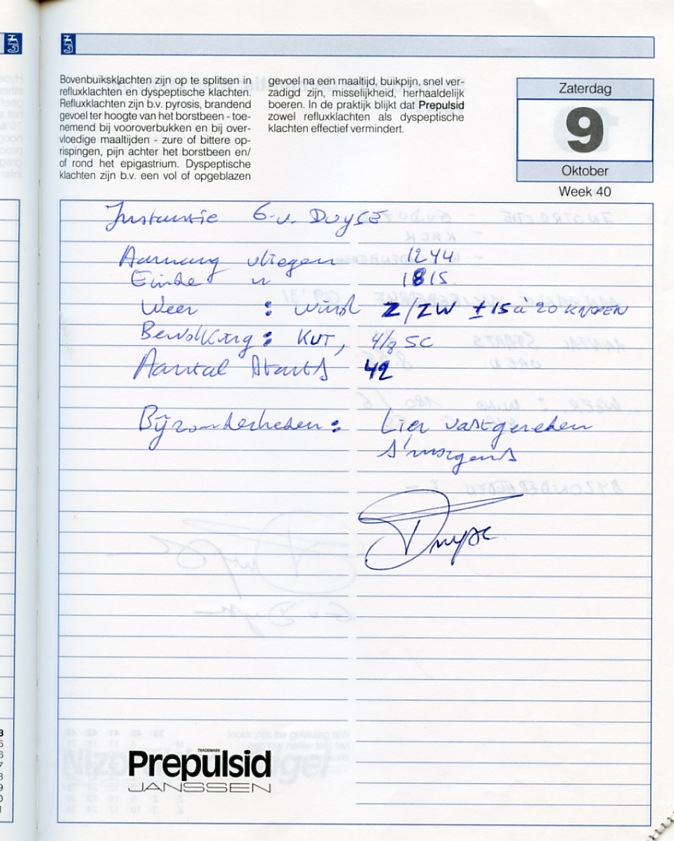 Bovenbuiksklachten zijn op te splitsen in
refluxklachten en dyspeptische klachten.
Refluxklachten zijn b.v. pyrosis, brandend
gevoel ter hoogte van het borstbeen - toe-
nemend bij vooroverbukken en bij over-
vloedige maaltijden - zure of bittere op-
rispingen, pijn achter het borstbeen en/
of rond het epigastrium. Dyspeptische
klachten zijn b.v. een vol of opgeblazen
gevoel na een maaltijd, buikpijn, snel ver-
zadigd zijn, misselijkheid, herhaaldelijk
boeren. In de praktijk blijkt dat Prepulsid
zowel refluxklachten als dyspeptische
klachten effectief vermindert.
Zaterdag
9
Oktober
Week 40
Instructie G.v. Duyse
Aanvang vliegen 1244
Einde " 1815
Weer : wind Z/ZW ± 15 à 20 KNOPEN
Bewolking : KUT, 4/8 SC
Aantal starts 42
Bijzonderheden : Lier vastgereden
s'morgens
Duyse
TRADEMARK
Prepulsid
JANSSEN